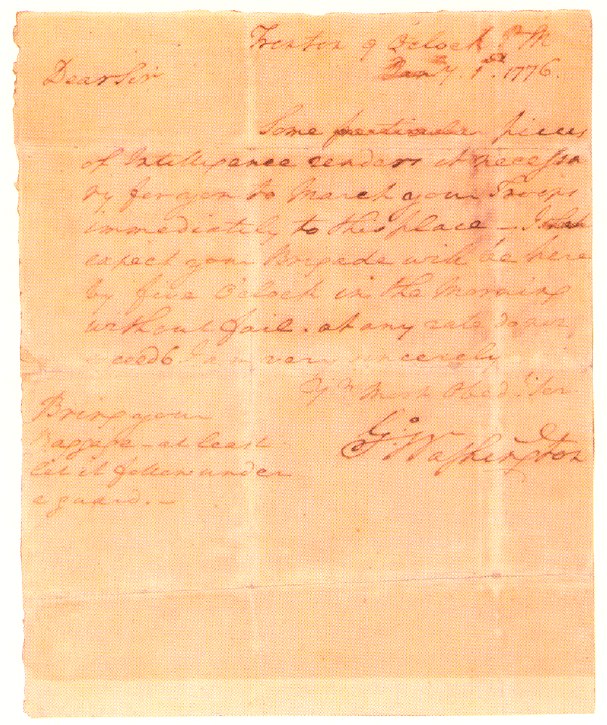 Trenton 9 O'Clock P.M
Jany. 1st. 1776.
Dear Sir
Some particular pieces
of Intelligence renders it necessa
ry for you to March your Troops
immediately to this place – I
expect your Brigade will be here
by five O'Clock in the Morning
without fail. at any rate do not
exceed 6. I am very sincerely
Yr Most Obedt Ser
Go Washington
Bring your
Baggage – at least
let it follow under
a guard. –